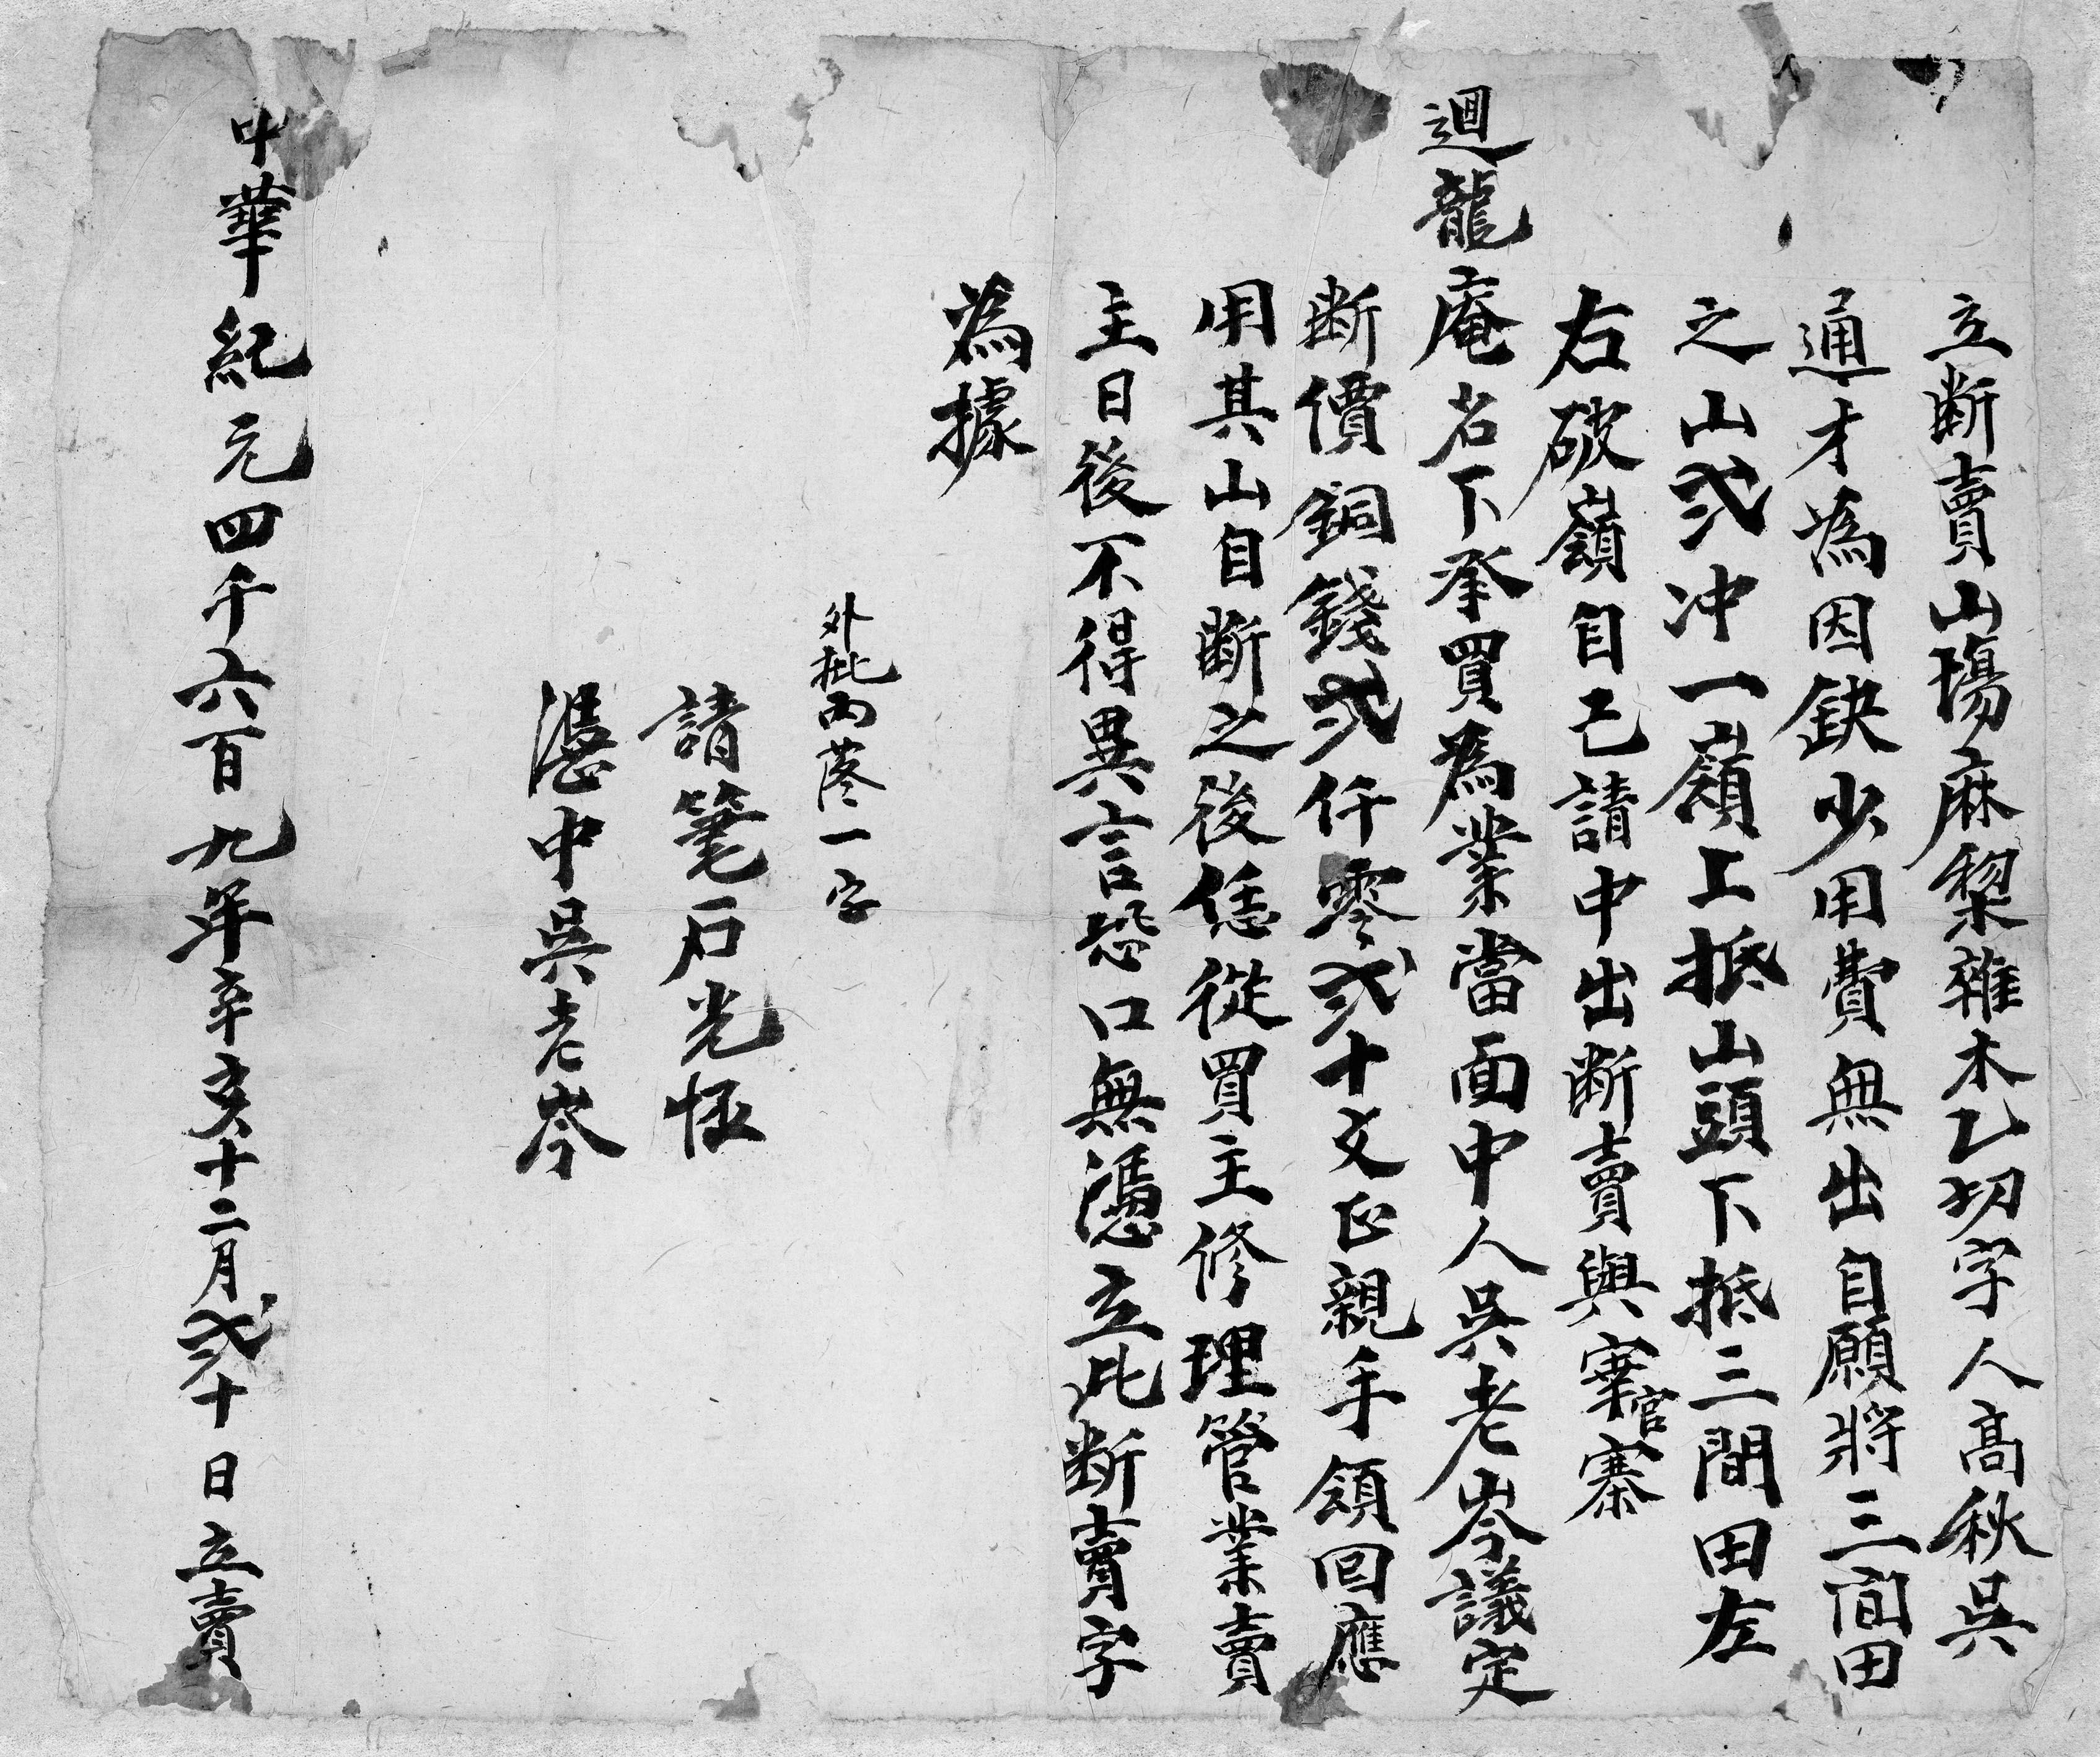 立断賣山塲麻棃雜木乙切字人高秋吳
通才為因缺少用費無出自願將三間田
之山弐冲一嶺上抵山頭下抵三間田左
右破嶺自己請中出断賣與寨官寨
迴龍庵名下承買為業當面中人吳老岑議定
断價銅錢弐仟零弐十文正親手領回應
用其山自断之後恁從買主修理管業賣
主日後不得異言恐口無憑立此断賣字
為據
外批內落一字
請筆石光恒
憑中吳老岑
中華紀元四千六百九年辛亥十二月弐十日立賣